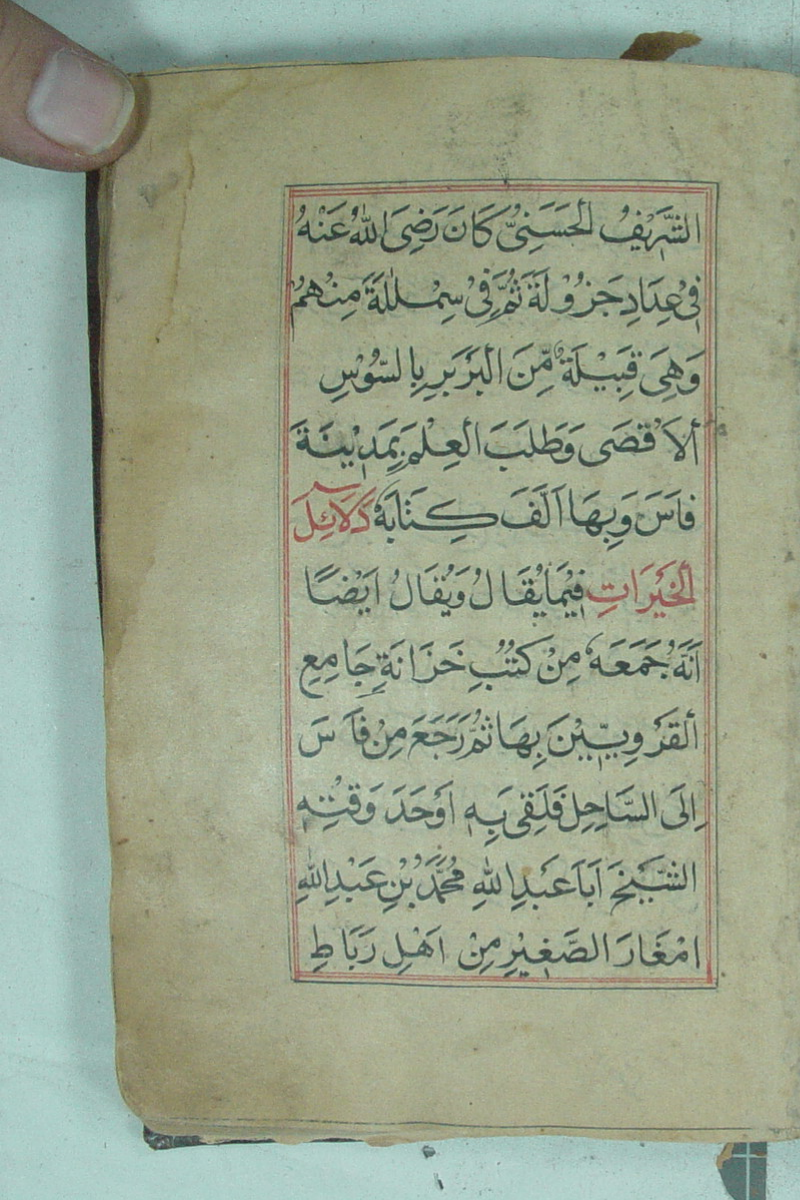 الشَّرِيْفُ الْحَسَنِىُّ كَانَ رَضِىَ اللّٰهُ عَنْهُ
فِىْ عِدَادِ جَزُوْلَةَ ثُمَّ فِىْ سِمْلَالَةَ مِنْهُمْ
وَهِىَ قَبِيْلَةٌ مِّنَ الْبَرْبَرِ بِالسُّوْسِ
الْاَقْصَى وَطَلَبَ الْعِلْمَ بِمَدِيْنَةِ
فَاسَ وَبِهَا اَلَّفَ كِتَابَهٗ دَلَائِلَ
الْخَيْرَاتِ فِيْمَا يُقَالُ وَيُقَالُ اَيْضًا
اَنَّهٗ جَمَعَهٗ مِنْ كُتُبِ خَزَانَةِ جَامِعِ
الْقَرَوِيِّيْنَ بِهَا ثُمَّ رَجَعَ مِنْ فَاسَ
اِلَى السَّاحِلِ فَلَقِىَ بِهٖ اَوْحَدَ وَقْتِهٖ
الشَّيْخَ اَبَا عَبْدِ اللّٰهِ مُحَمَّدَ بْنِ عَبْدِ اللّٰهِ
اَمْغَارَ الصَّغِيْرِ مِنْ اَهْلِ رِبَاطِ